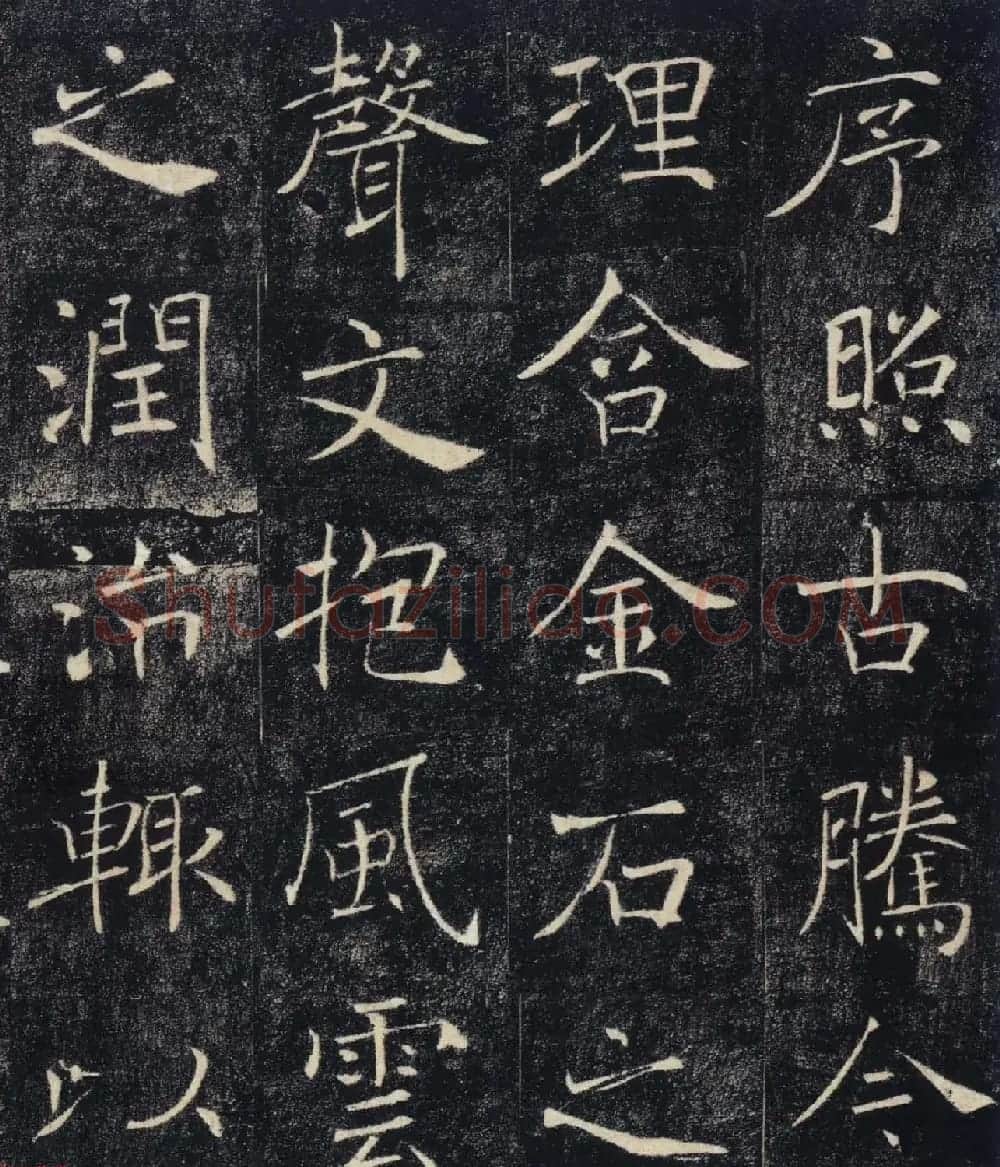 序照古騰今
理含金石之
聲文抱風雲
之潤治輒以
Shufaziliao.COM